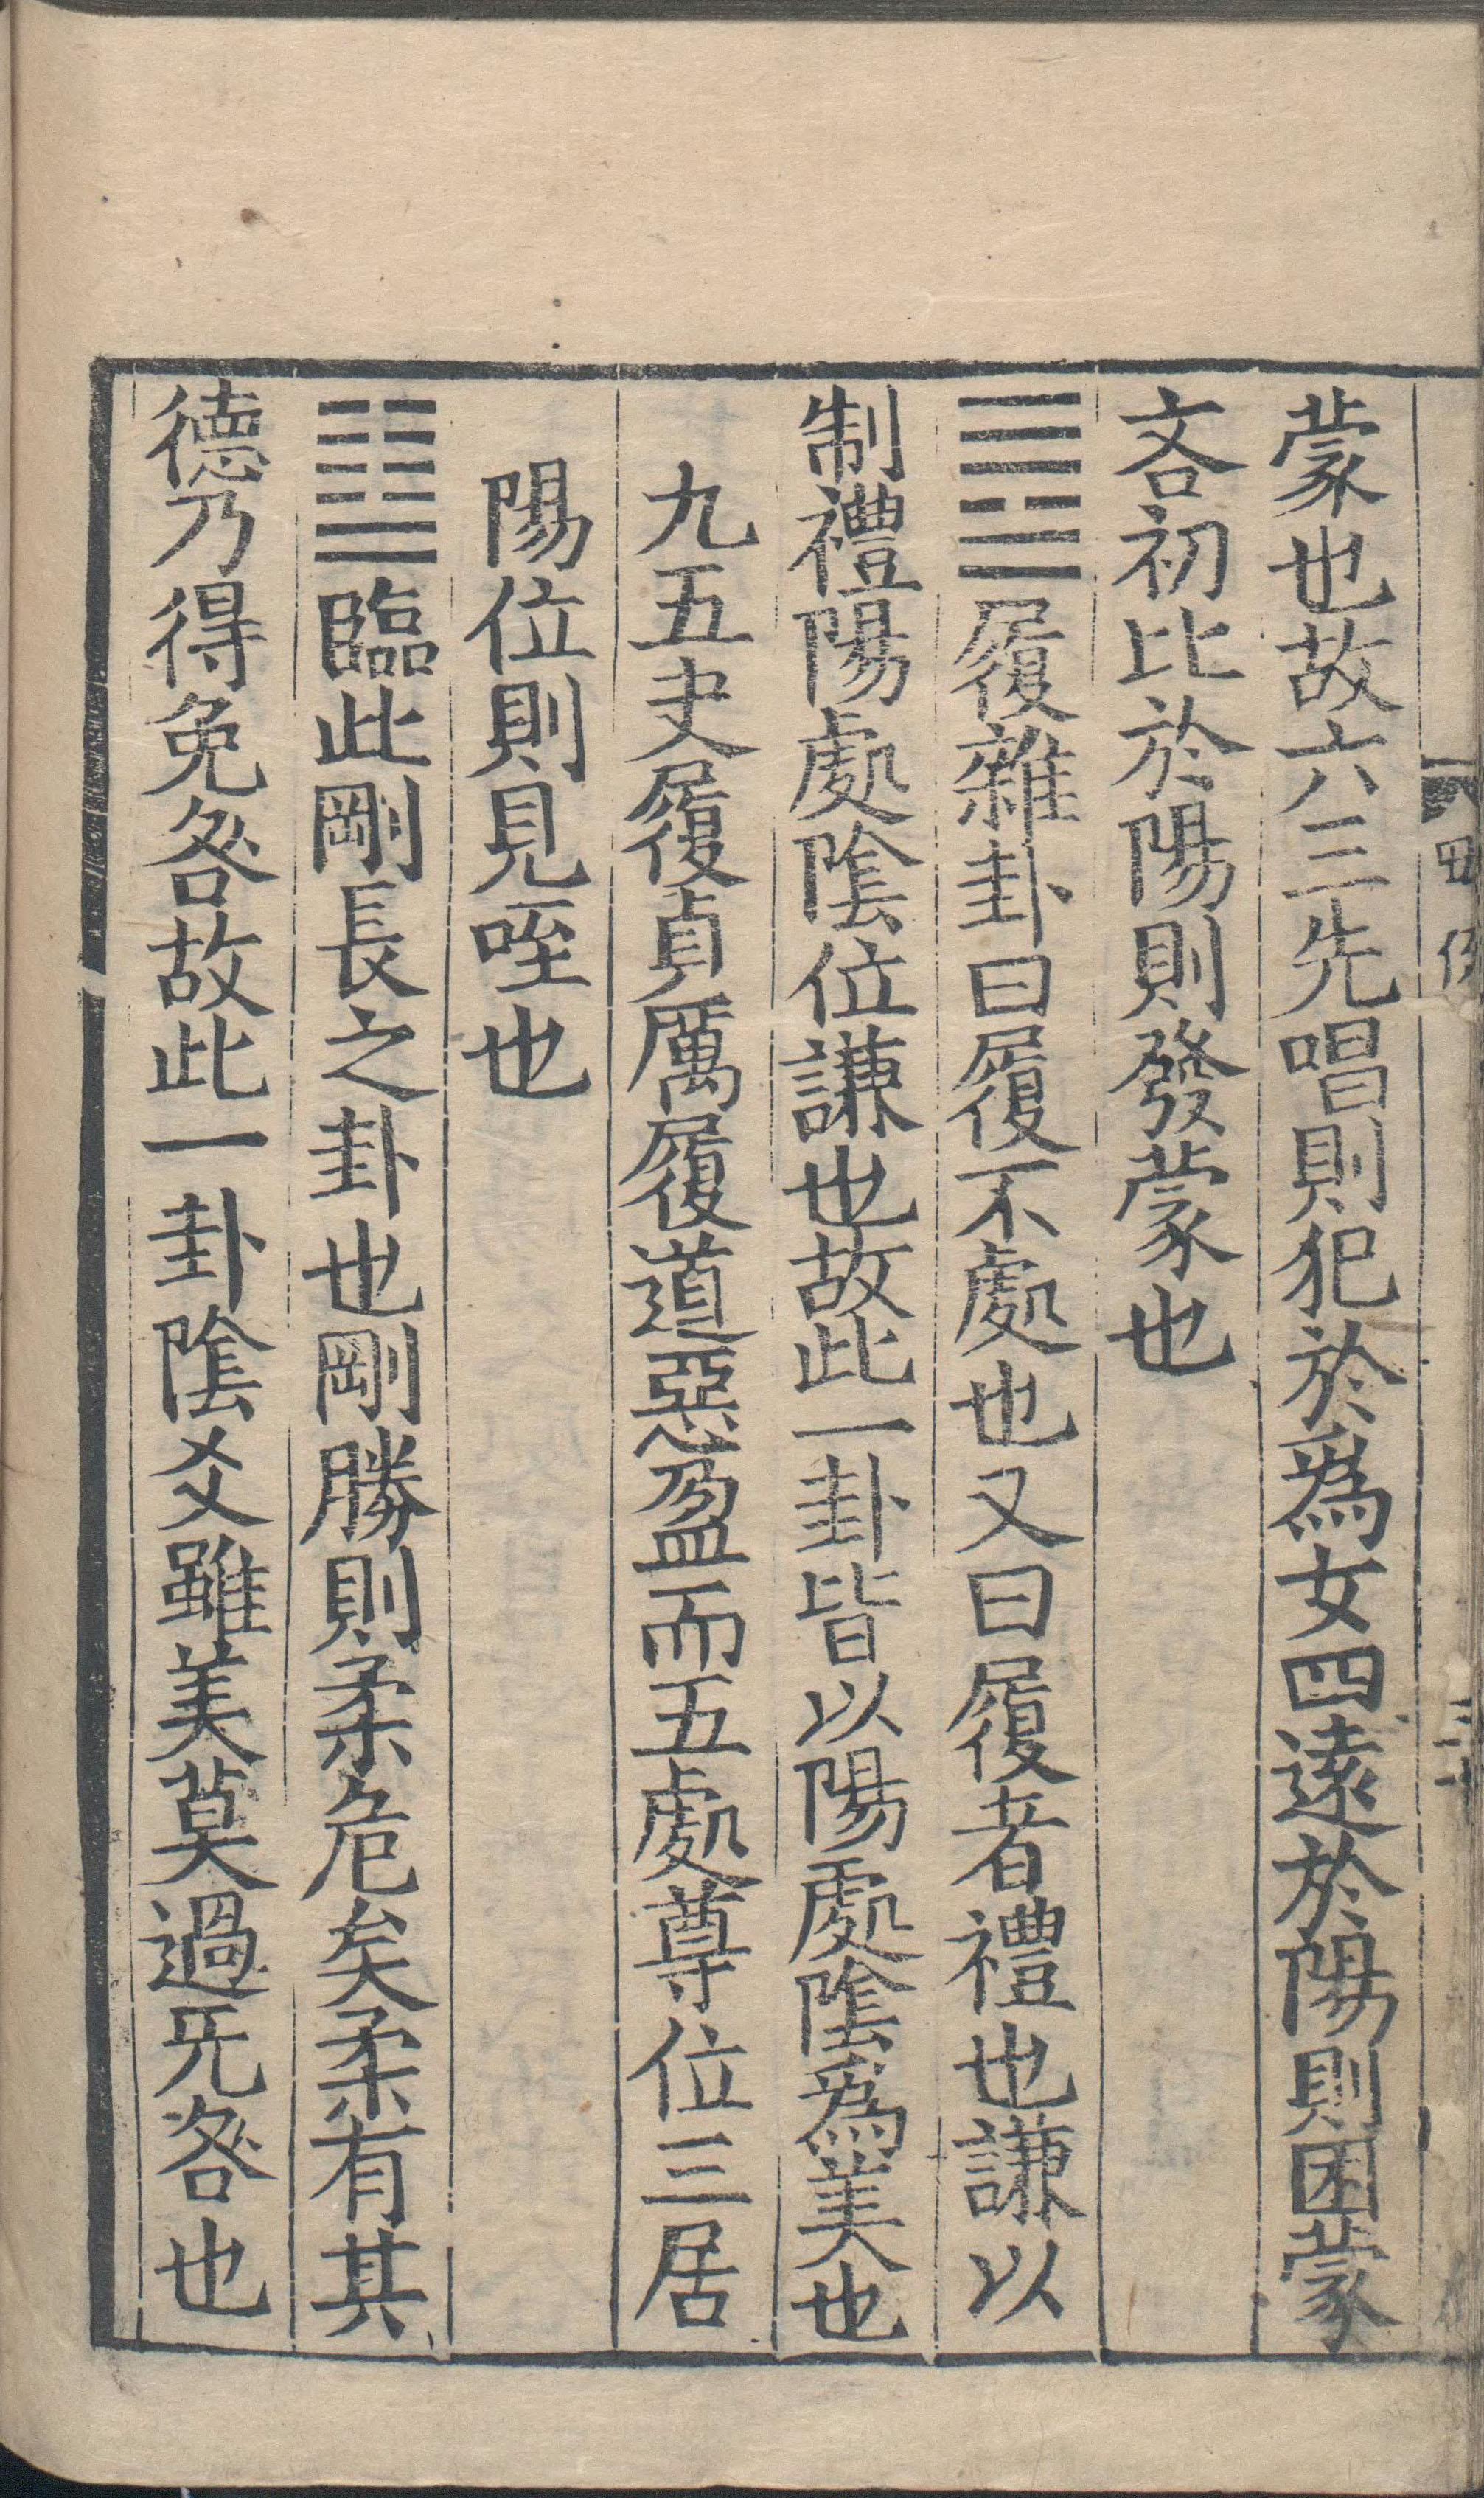 蒙也故六三先唱則犯於為女四逺於陽則困蒙
吝初比於陽則發蒙也
䷉履雜卦曰履不處也又曰履者禮也謙以
制禮陽處隂位謙也故此一卦皆以陽處隂為美也
九五夬履貞厲履道惡盈而五處尊位三居
陽位則見咥也
䷒臨此剛長之卦也剛勝則柔危矣柔有其
德乃得免咎故此一卦隂爻雖美莫過无咎也